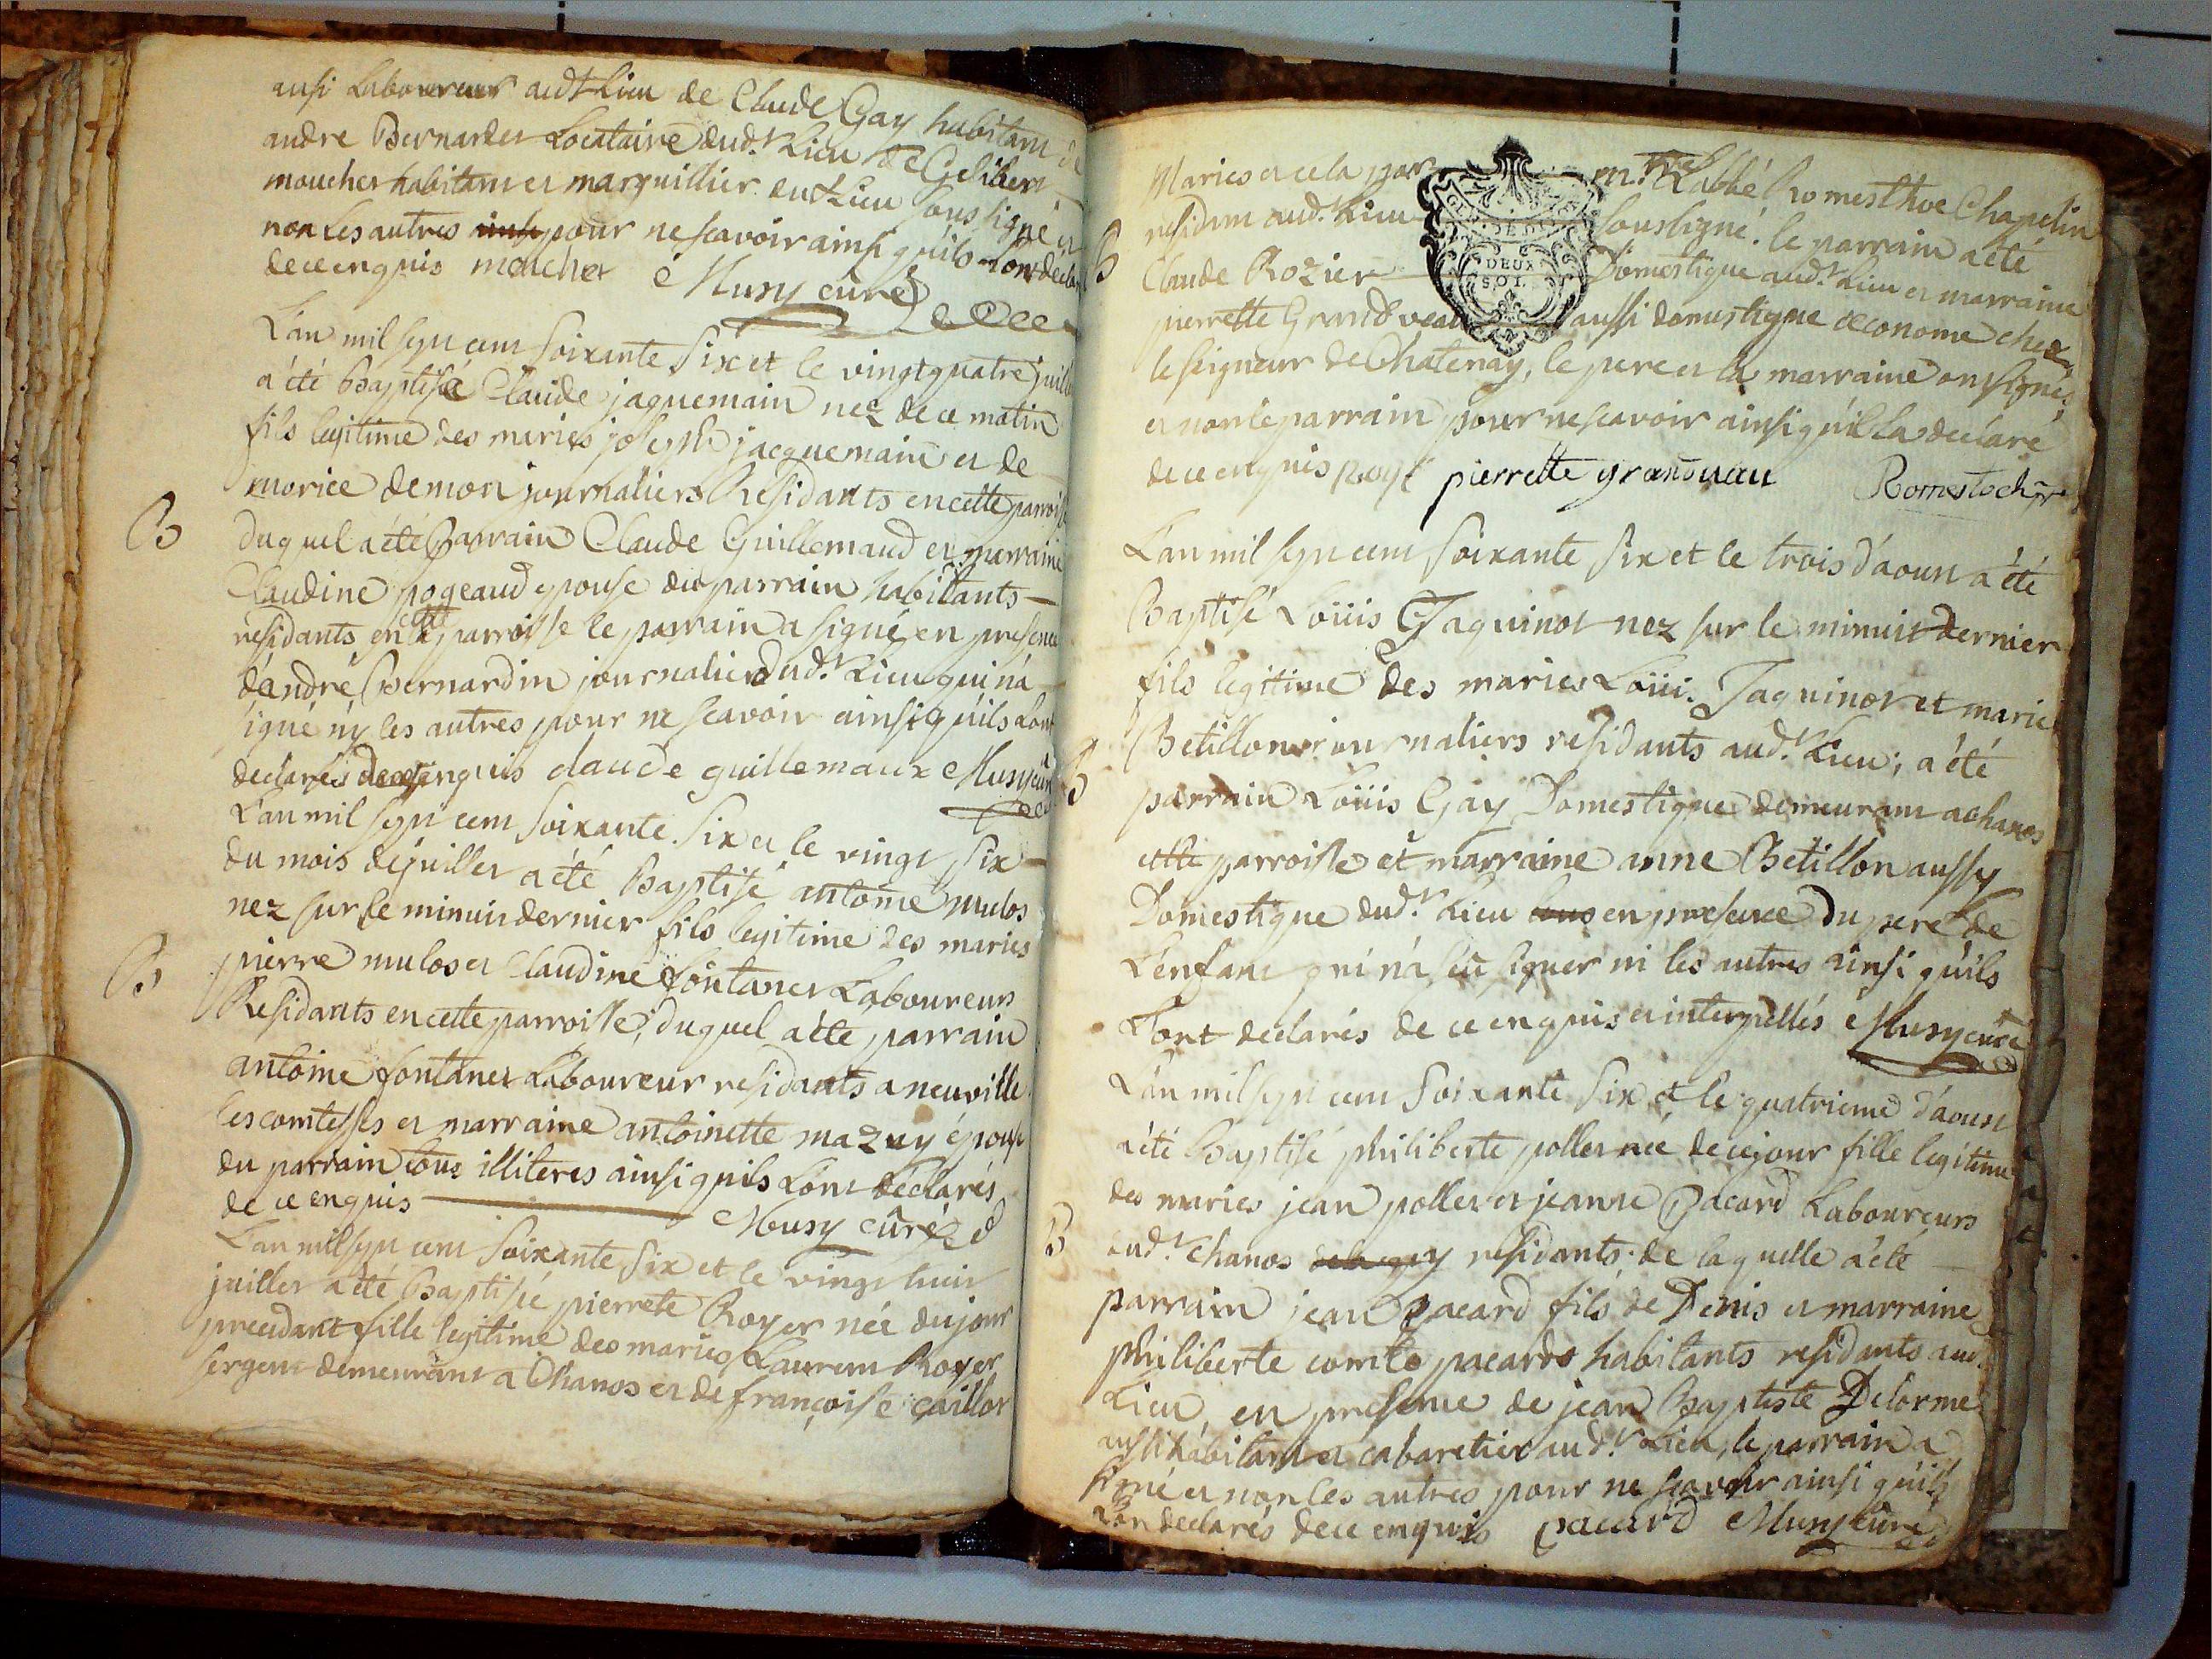 ausi Laboureur audt Lieu de Claude Gay habitant de
andre Bernardet Locataire dud.t Lieu de Gelibert
mouchet habitant et marguillier dudt Lieu soussigné et
non Les autres pour ne scavoir ainsi qu'ils lont declare
de ce enquis mouchet Musy curé
L'an mil sept cent soixante six et le vingt quatre juillet
a été Baptisé Claude jaquemain nez de ce matin
fils legitime des maries joseph jacquemain et de
moriee demon journaliers Residants en cette parroisse
B
duquel a été Parrain Claude Guillemaud et marraine
Claudine pogeaud epouse du parrain habitants
residants en cette parroisse le parrain a signé en presence
d'andré Bernardin journalier dud.t Lieu qui n'a
signé ny les autres pour ne scavoir ainsi qu'ils Lont
declarés de ce enquis claude guillemaux Musy curé
L'an mil sept cent soixante six et le vingt six
du mois de juillet a été Baptisé antoine mulos
nez sur le minuit dernier fils legitime des maries
B
pierre mulos et Claudine fontanet Laboureurs
Residants en cette parroisse; duquel a été parrain
antoine fontanet Laboureur residants a neuville
les comtesses et marraine antoinette mazuy épouse
du parrain tous illiteres ainsi quils Lont déclarés
de ce enquis Musy curé
L'an mil sept cent soixante six et le vingt huit
juillet a été Baptisée pierrete Royer née du jour
precedant fille legitime des maries Laurent Royer
sergent demeurant a Chanos et de françoise caillot
Maries et cela par m.re L'abbé Romesthoc Chapelin
DEUX
SOL.
residant aud.t Lieu soussigné. le parrain a été
B
Claude Rozier Domestique aud.t Lieu et marraine
pierrette Grandveau aussi domestique oeconome chez
le seigneur de Chatenay, le pere et la marraine ont signés
et non le parrain pour ne scavoir ainsi qu'il La declaré
de ce enquis pierrette granduau
L'an mil sept cent soixante six et le trois d'aoust a été
Baptisé Loüis Jaquinot nez sur le minuit dernier
fils legitime des maries Loüis Jaquinot et marie
Betillon journaliers residants aud.t Lieu; a été
B
parrain Loüis Gay Domestique demeurant a chanos
cette parroisse et marraine anne Betillon aussy
Domestique dud.t Lieu en presence du pere de
L'enfant qui n'a scu signer ni les autres ainsi qu'ils
L'ont declarés de ce enquis et interpellés Musy curé
L'an mil sept cent soixante six et le quatrieme d'aoust
a été Baptisé philiberte pollet née de ce jour fille legitime
des maries jean pollet et jeanne Pacard Laboureurs
B
aud.t Chanos residants de laquelle a été
parrain jean pacard fils de Denis et marraine
philiberte comte pacard habitants residants aud.t
Lieu, en presence de jean Baptiste Delorme
aussi habitant et cabaretier aud.t Lieu, le parrain a
signé et non les autres pour ne scavoir ainsi qu'ils
Lon declarés de ce enquis pacard Musy curé